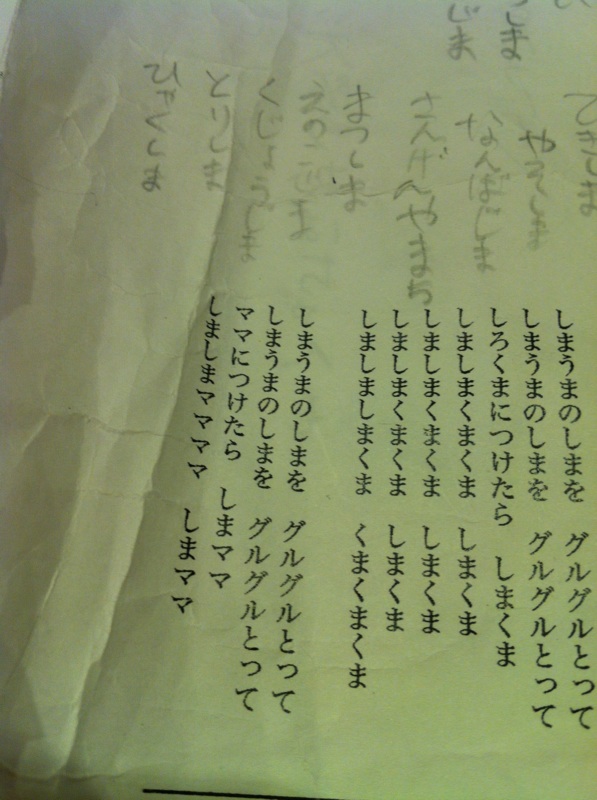 しま
じま
やえしま
なんばじま
さんげんやまち
まつしま
えのこじま
くじょうじま
とりしま
ひゃくしま
しまうまのしまを　グルグルとって
しまうまのしまを　グルグルとって
しろくまにつけたら　しまくま
しましまくまくま　しまくま
しましまくまくま　しまくま
しましまくまくま　しまくま
しましましまくま　くまくまくま
しまうまのしまを　グルグルとって
しまうまのしまを　グルグルとって
ママにつけたら　しまママ
しましまママママ　しまママ